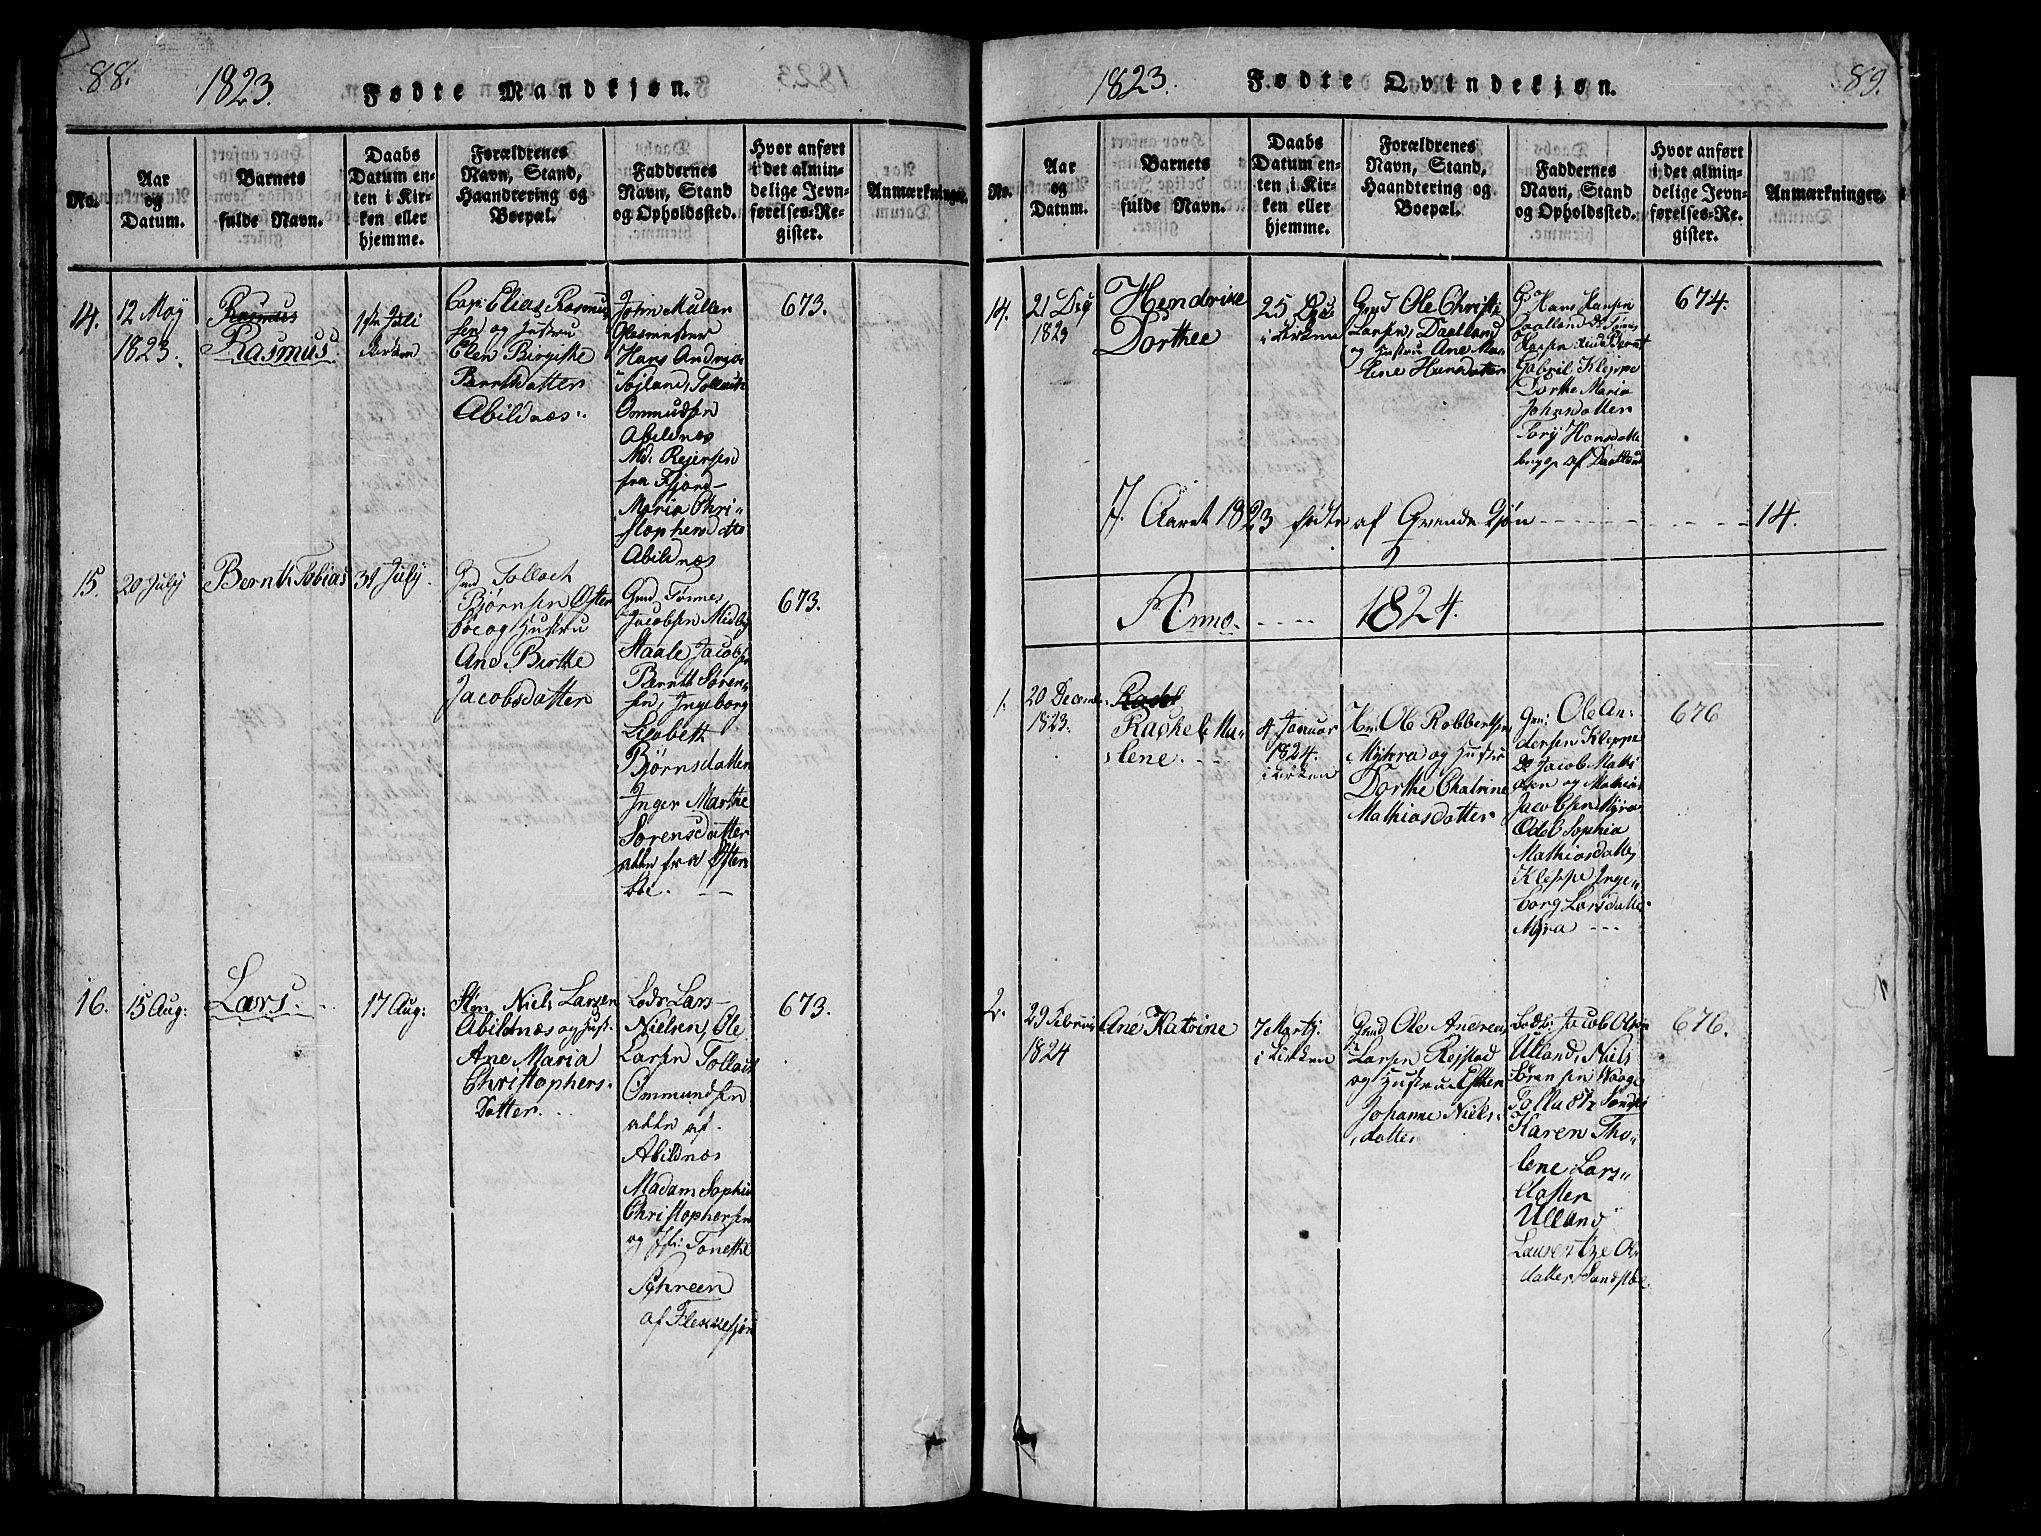 88.
1823.
Fødte Mandkjøn.
No.
Aar
og
Datum.
Barnets
fulde Navn.
Daabs
Datum en-
ten i Kir-
ken eller
hjemme.
Forældrenes
Navn, Stand,
Haandtering og
Boepæl.
Faddernes
Navn, Stand
og Opholdssted.
Hvor anført
i det almin-
delige Jevn-
førelses-Re-
gister.
Anmærkninger.
14.
12 May
1823.
Rasmus
Rasmus
1ste Juli
Capt: Elias Rasmus
sen og Hustru
Elen Birgithe
Berntsdatter
Abildnæs.
John Muller
Glasmester
Hans Andreas
Tollach
Ommudsen
Abildnæs
Md: Rejersen
fra Fjord
Maria Chri-
stophersdatter
Abildnæs
673.
15.
20 July
Bernth Tobias
31 July.
Gmd Tollach
Bjørnsen Øster
böe og Hustru
Ane Birthe
Jacobsdatter
Gmd Tønnes
Jacobsen Midby
Staale Jacobsen
Bernth Søren-
sen, Ingeborg
Lisabeth
Bjørnsdatter
Inger Marthe
Sørensdatter
alle fra Øster-
böe.
673.
16.
15 Aug:
Lars.
17 Aug:
Niels Larsen
Abildnæs og Hust:
Ane Maria
Christophers-
Datter.
Lods Lars
Nielsen, Ole
Larsen Tollach
Ommundsen
alle af
Abildnæs
Madam Sophia
Christophersen
og Jfr: Tonethe
af Flekkefjord
673.
1823.
Fødte Qvindekjøn.
89.
No.
Aar
og
Datum.
Barnets
fulde Navn.
Daabs
Datum en-
ten i Kir-
ken eller
hjemme.
Forældrenes
Navn, Stand,
Haandtering og
Boepæl.
Faddernes
Navn, Stand
og Opholdssted.
Hvor anført
i det almin-
delige Jevn-
førelses-Re-
gister.
Anmærkninger.
14.
21 Dec
1823
Hendrike
Dorthee
25 Dec
i Kirken
Gmd Ole Christi
Larsen, Daatland
og Hustru Ane Ma-
lene Hansdatter
Hans Hansen
Daatland
Gabriel Kleppe
Dorthe Maria
Johnsdatter
Tory Hansdatter
begge af Daatland
674.
I Aaret 1823 fødte af Qvindekjøn - - - 14.
Anno - - - 1824.
1.
20 Decemb.
1823.
Rachel
Rachele Ma-
lene.
4 Januar
1824.
i Kirken
Ole Robbertsen
Myhra og Hustru
Dorthe Chatrine
Mathiasdatter
Gm: Ole An-
dersen Kleppe
Do Jacob Mathi
asen og Mathias
Jacobsen Myra
Odel Sophia
Mathiasdatter
Kleppe Inge-
borg Larsdatter
Myra
676
2.
29 Februar
1824
Ane Katrine
7 Marty
i Kirken
Gmd Ole Andreas
Larsen Rejstad
og Hustrue Esther
Johanne Niels-
datter
Lods: Jacob Olsen
Ulland, Niels
Sørensen Waage
Karen Tho-
lene Lars-
datter
Ulland
676.